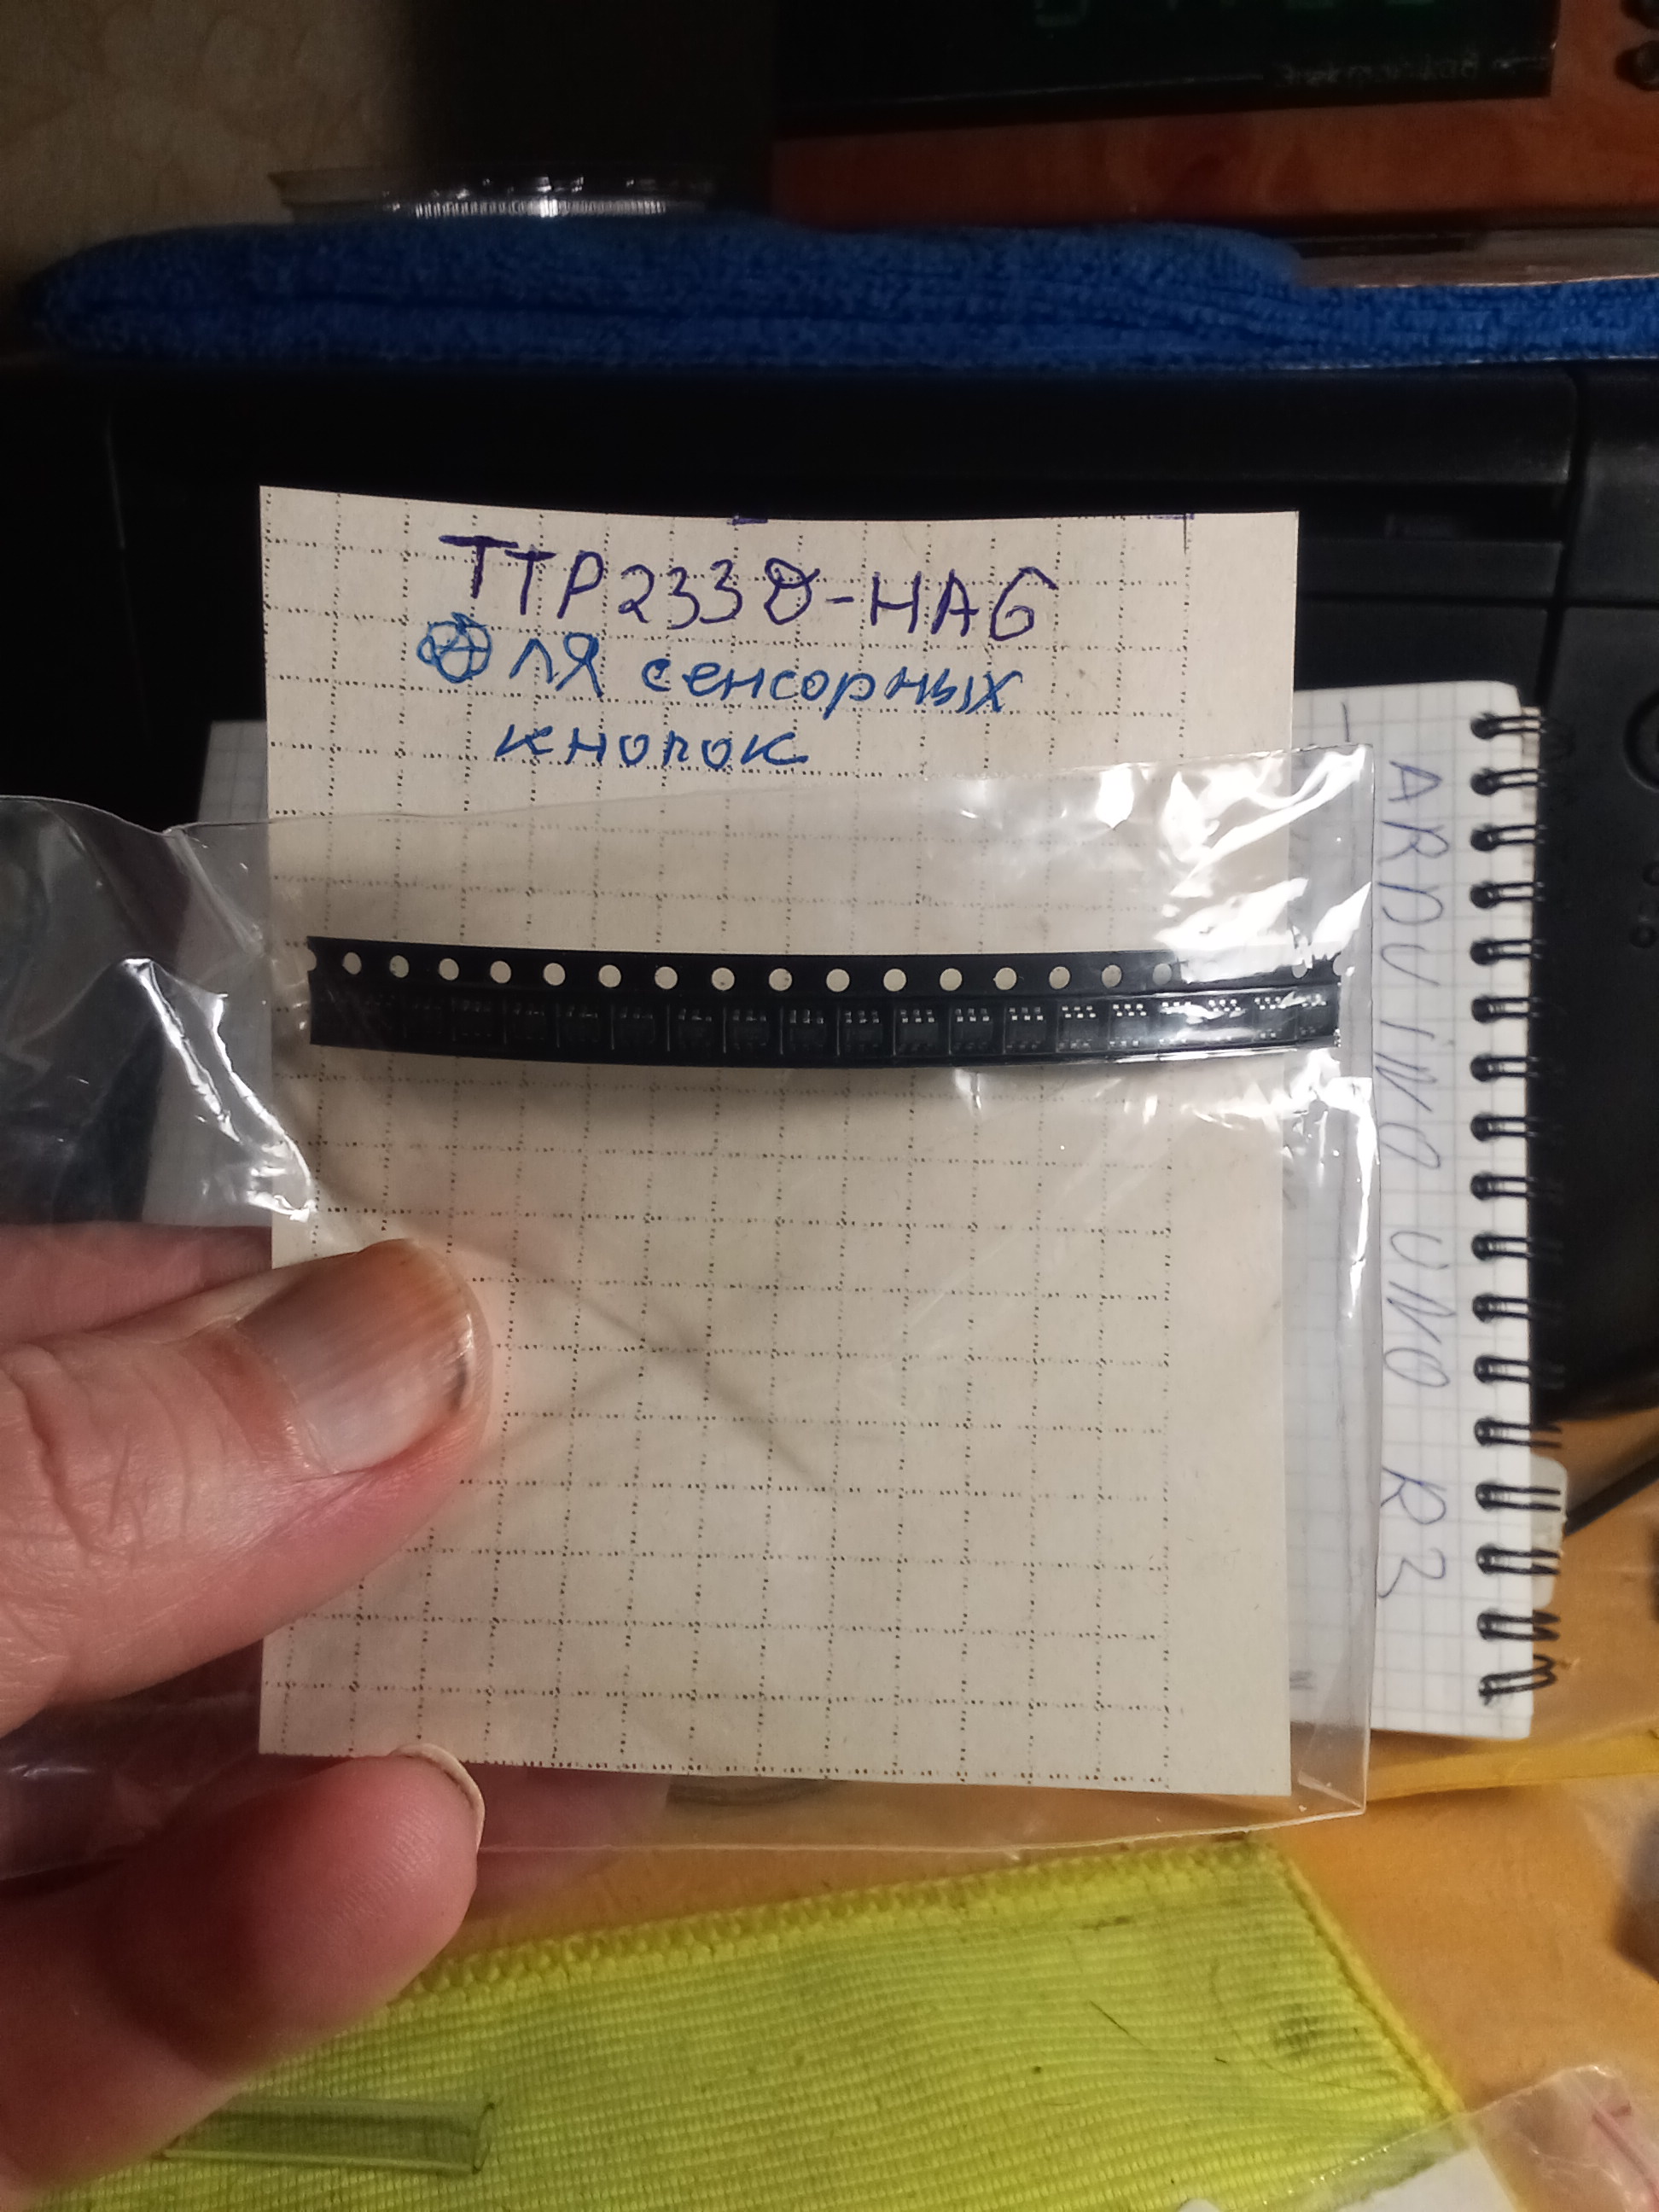 TTP233D-HA6
Для сенсорных
кнопок
ARDUINO UNO R3